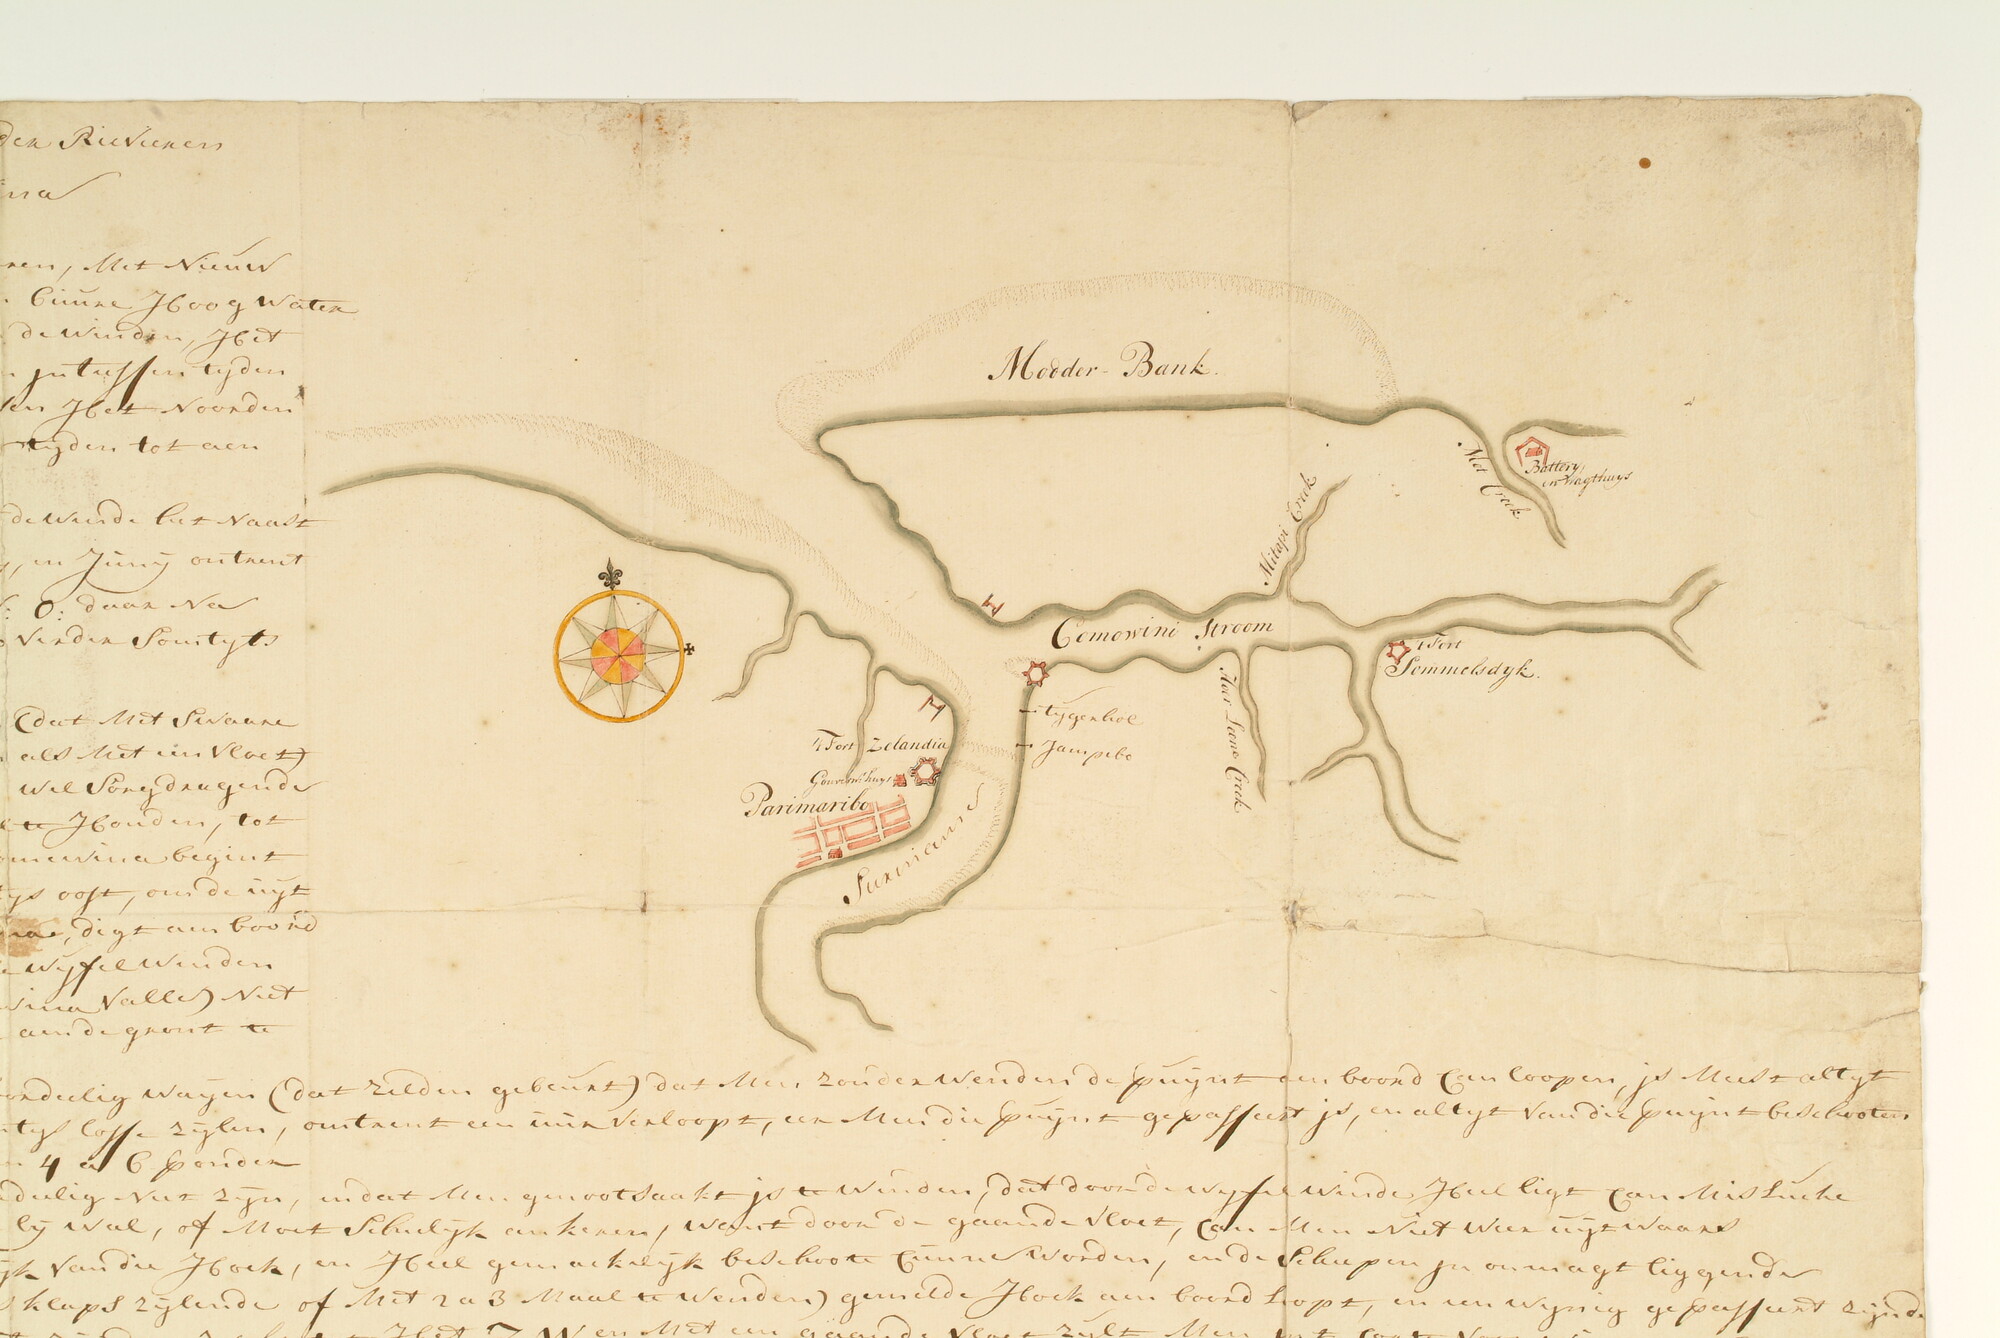 den Rievieren
ina
ren, Met Nieuw
buure Hoog Water
de Winden, Het
n jntussen tyden
en Het Noorden
tyden tot aen
de Winde het Naast
, in Junij ontrent
: O: daar Na
Verder Somtyts
(dat Met Swaare
als Met een Vloet)
wel Sorgdragende
te Houden, tot
mewina begint
oost, om de uyt
digt aen boord
Wyfel Winden
sina Valles) Niet
aen de gront te
Modder-Bank.
Mot Creek
Battery,
en Wagthuys
Mitapi Creek
M
Comowini Stroom
't Fort
Sommelsdyk.
tygerhol
Jampebo
M
't Fort Zelandia
Gouvernrs. huys
Parimaribo
Suriname
Creek
ordeelig Wayen (dat Zelden gebeurt) dat Men Zonder Wenden de puynt aen boord Can loopen, js Meest altyt
losse Zylen, ontrent een uur Verloopt, eer Men die puynt gepasseert js, en altyt Van die puynt beschooten
4 a 6 ponder
deelig Niet Zyn, omdat Men genootsaakt js te Winden, dat door de Wyfel Winde Heel ligt Can Mislucke
ly Wal, of Moet Schielyk ankeren, Want door de gaande Vloet, Can Men Niet Wer uyt Waars
Van die Hoek, en Heel gemackelyk beschoote Cunne Worden, en de Scheepen jn onmagt liggende
klaps Zylende of Met 2 a 3 Maal te Wenden) gemelde Hoek aen boord loopt, en een Wynig gepasseert Zynde